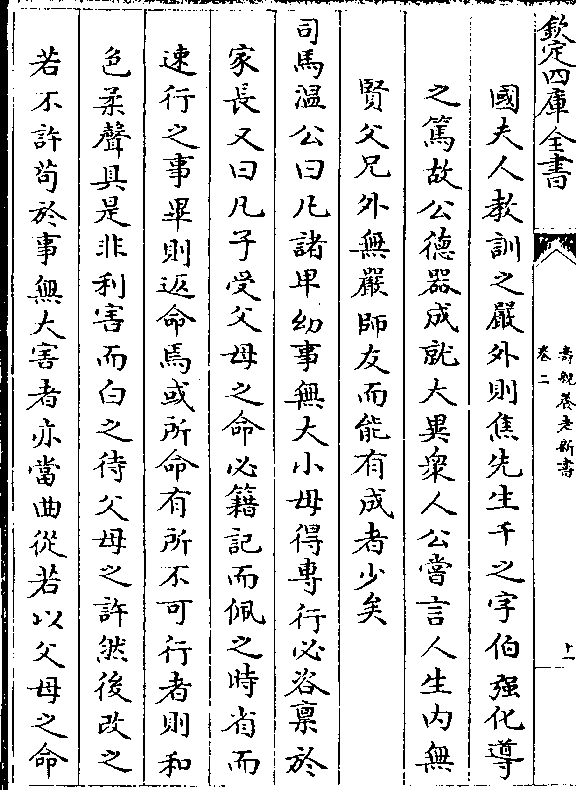 欽定四庫全書
壽親養老新書
卷二
十一
國夫人教訓之嚴外則焦先生千之字伯强化導
之篤故公德器成就大異衆人公嘗言人生内無
賢父兄外無嚴師友而能有成者少矣
司馬溫公曰凡諸卑幼事無大小毋得專行必咨禀於
家長又曰凡子受父母之命必籍記而佩之時省而
速行之事畢則返命焉或所命有所不可行者則和
色柔聲具是非利害而白之待父母之許然後改之
若不許茍於事無大害者亦當曲從若以父母之命